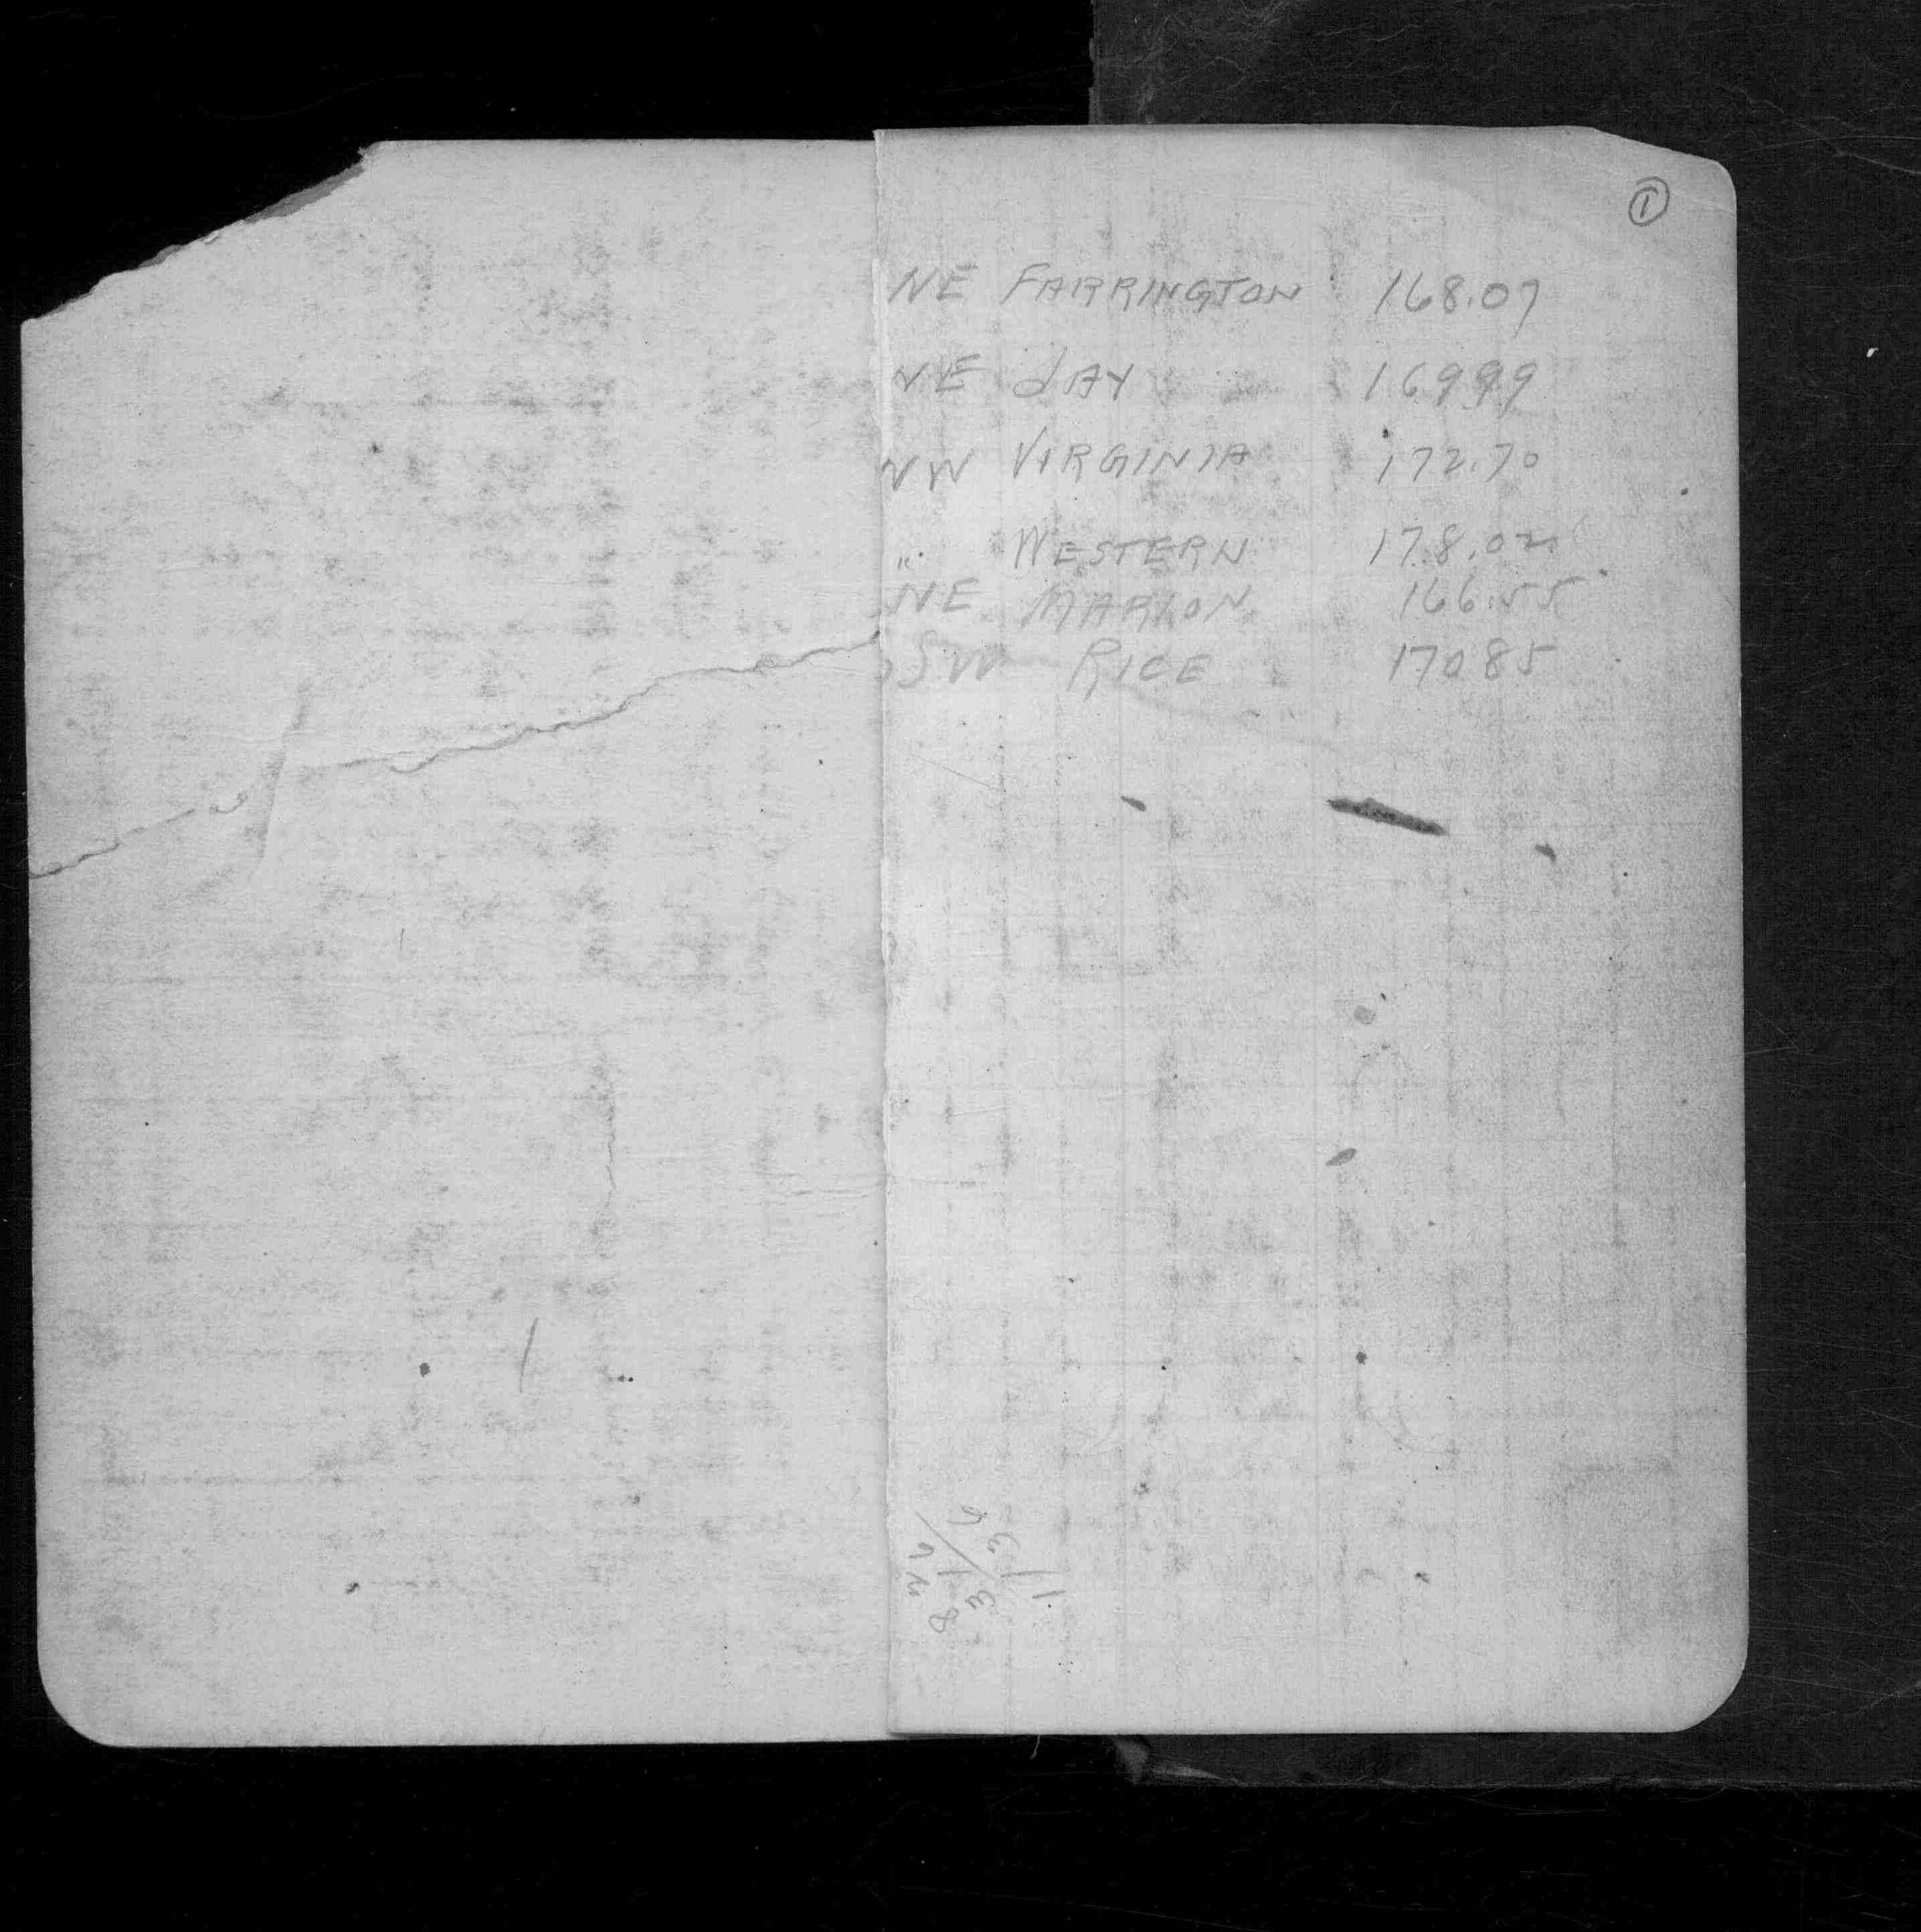 ①
NE FARRINGTON 168.07
NE JAY 169.99
NW VIRGINIA 172.70
" WESTERN 178.02
NE MARION 166.55
SW RICE 170 85